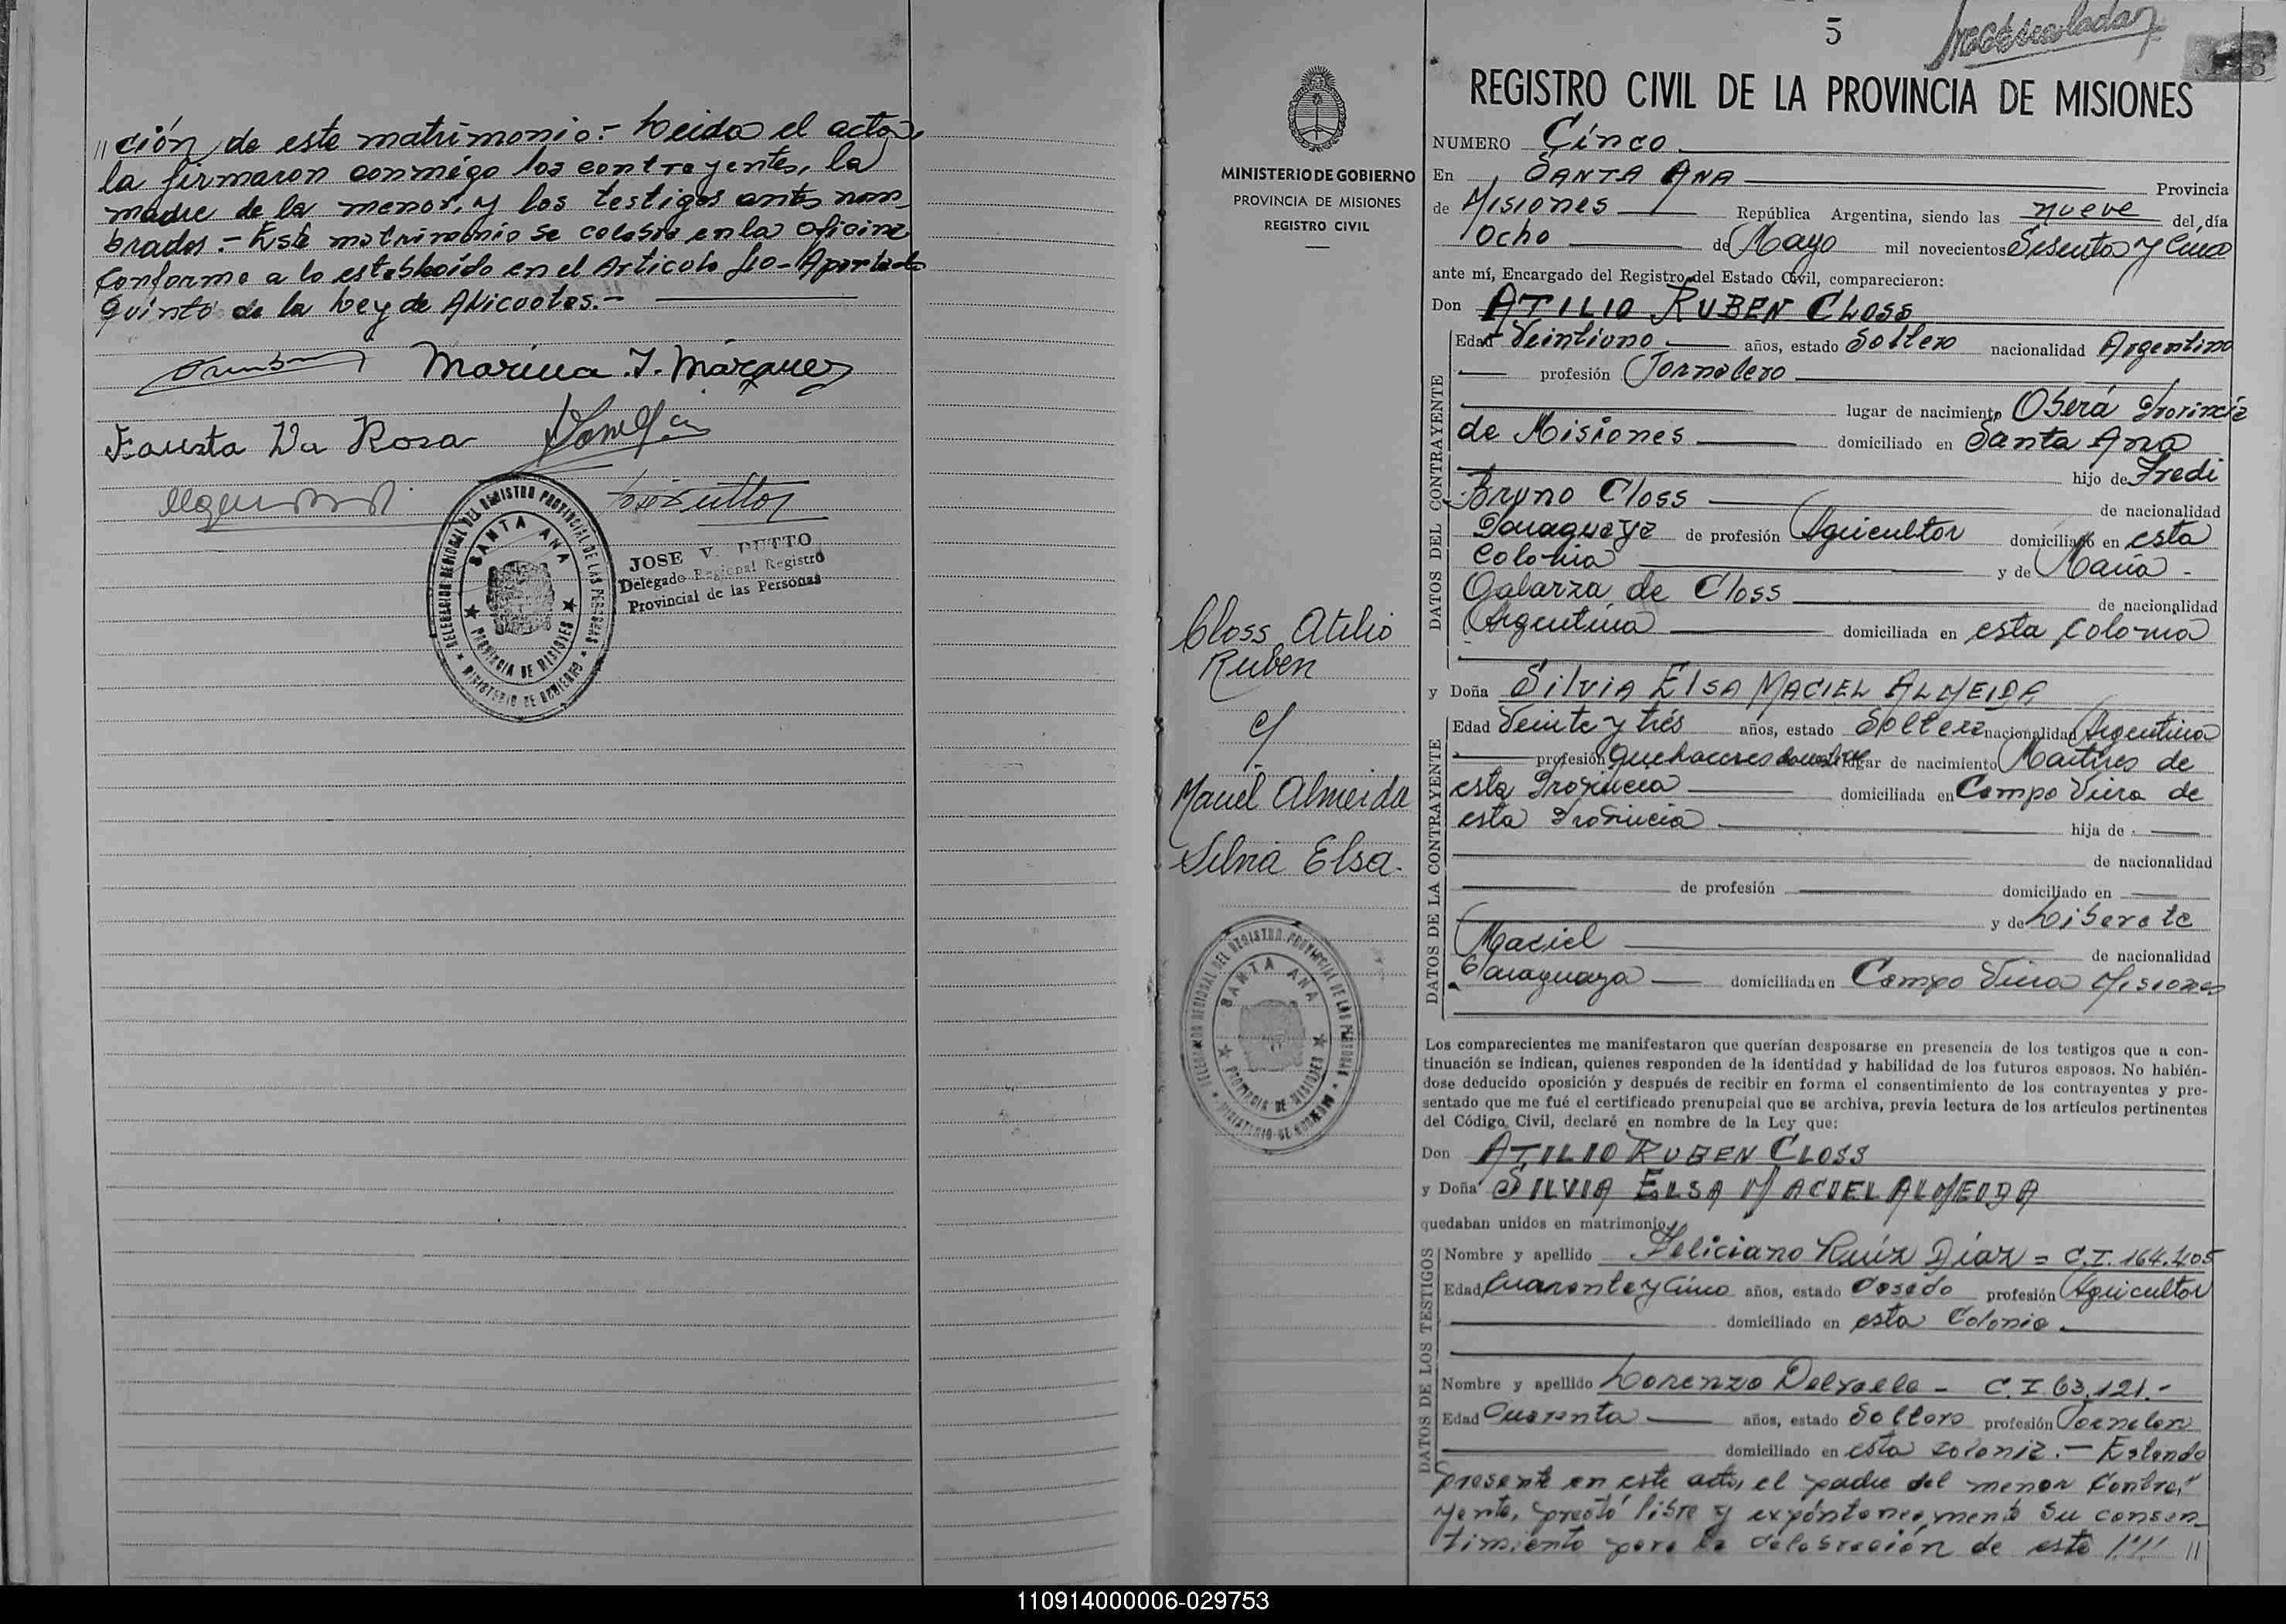 // ción de este matrimonio.- Leida el acta,
la firmaron conmigo los contrayentes, la
madre de la menor, y los testigos antes nom
brados.- Este matrimonio se celebra en la oficina
Conforme a lo establecido en el Articolo 40-Apartado
Quinto de la Ley de Alicuotas.-
Marina. I. Márquez
Fausta Da Rosa
DELEGACION REGIONAL DEL REGISTRO PROVINCIAL DE LAS PERSONAS
SANTA ANA
PROVINCIA DE MISIONES
MINISTERIO DE GOBIERNO
JOSE V. DUTTO
Delegado Regional Registro
Provincial de las Personas
MINISTERIO DE GOBIERNO
PROVINCIA DE MISIONES
REGISTRO CIVIL
Closs Atilio
Ruben
c/
Maciel Almeida
Silvia Elsa.
DELEGACION REGIONAL DEL REGISTRO PROVINCIAL DE LAS PERSONAS
SANTA ANA
PROVINCIA DE MISIONES
MINISTERIO DE GOBIERNO
5
REGISTRO CIVIL DE LA PROVINCIA DE MISIONES
NUMERO Cinco
En SANTA ANA Provincia
de Misiones República Argentina, siendo las nueve del día
Ocho de Mayo mil novecientos Sesenta y Cinco
ante mí, Encargado del Registro del Estado Civil, comparecieron:
Don ATILIO RUBEN CLOSS
DATOS DEL CONTRAYENTE
Edad Veintiuno años, estado Soltero nacionalidad Argentino
profesión Jornalero
lugar de nacimiento Oberá Provincia
de Misiones domiciliado en Santa Ana
hijo de Fredi
Bruno Closs de nacionalidad
Paraguaya de profesión Agricultor domiciliado en esta
Colonia y de Maria -
Galarza de Closs de nacionalidad
Argentina domiciliada en esta Colonia
y Doña SILVIA ELSA MACIEL ALMEIDA
DATOS DE LA CONTRAYENTE
Edad Veinte y trés años, estado Soltera nacionalidad Argentina
profesión Quehaceres domést. lugar de nacimiento Martires de
esta Provincia domiciliada en Campo Viera de
esta Provincia hija de
de nacionalidad
de profesión domiciliado en
y de Liberata
Maciel de nacionalidad
Paraguaya domiciliada en Campo Viera Misiones
Los comparecientes me manifestaron que querían desposarse en presencia de los testigos que a con-
tinuación se indican, quienes responden de la identidad y habilidad de los futuros esposos. No habién-
dose deducido oposición y después de recibir en forma el consentimiento de los contrayentes y pre-
sentado que me fué el certificado prenupcial que se archiva, previa lectura de los artículos pertinentes
del Código, Civil, declaré en nombre de la Ley que:
Don ATILIO RUBEN CLOSS
y Doña SILVIA ELSA MACIEL ALMEIDA
quedaban unidos en matrimonio.
DATOS DE LOS TESTIGOS
Nombre y apellido Feliciano Ruíz Díaz = C.I. 164.405
Edad Cuarenta y Cinco años, estado Casado profesión Agricultor
domiciliado en esta Colonia.
Nombre y apellido Lorenzo Delvalle - C.I. 63.121.-
Edad Cuarenta años, estado Soltero profesión Jornalero
domiciliado en esta colonia.- Estando
presente en este acto, el padre del menor Contra-
yente, prestó libre y expóntaneamente su consen-
timiento para la celebración de este //// //
110914000006-029753